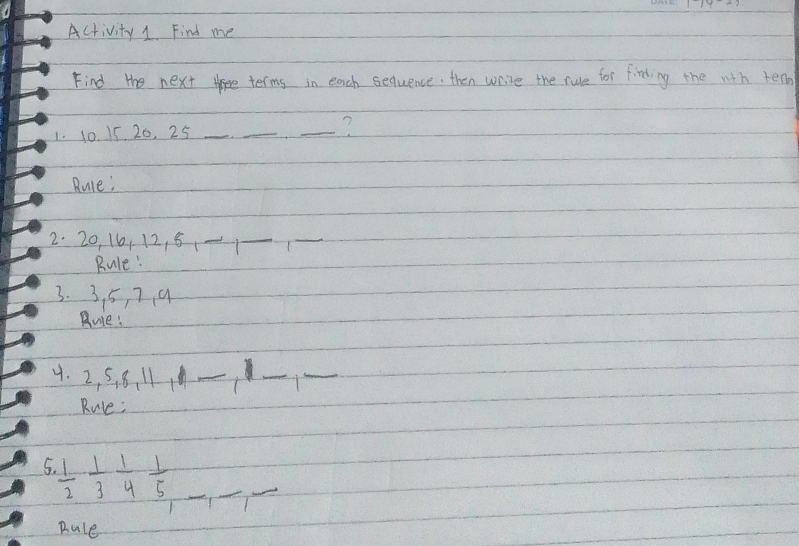 Activity 1. Find me
Find the next three terms in each sequence. then write the rule for finding the nth term
1. 10, 15, 20, 25 __, __, __?
Rule:
2. 20, 16, 12, 8, __, __, __
Rule:
3. 3, 5, 7, 9
Rule:
4. 2, 5, 8, 11, __, __, __
Rule:
5. 1/2 1/3 1/4 1/5, __, __, __
Rule